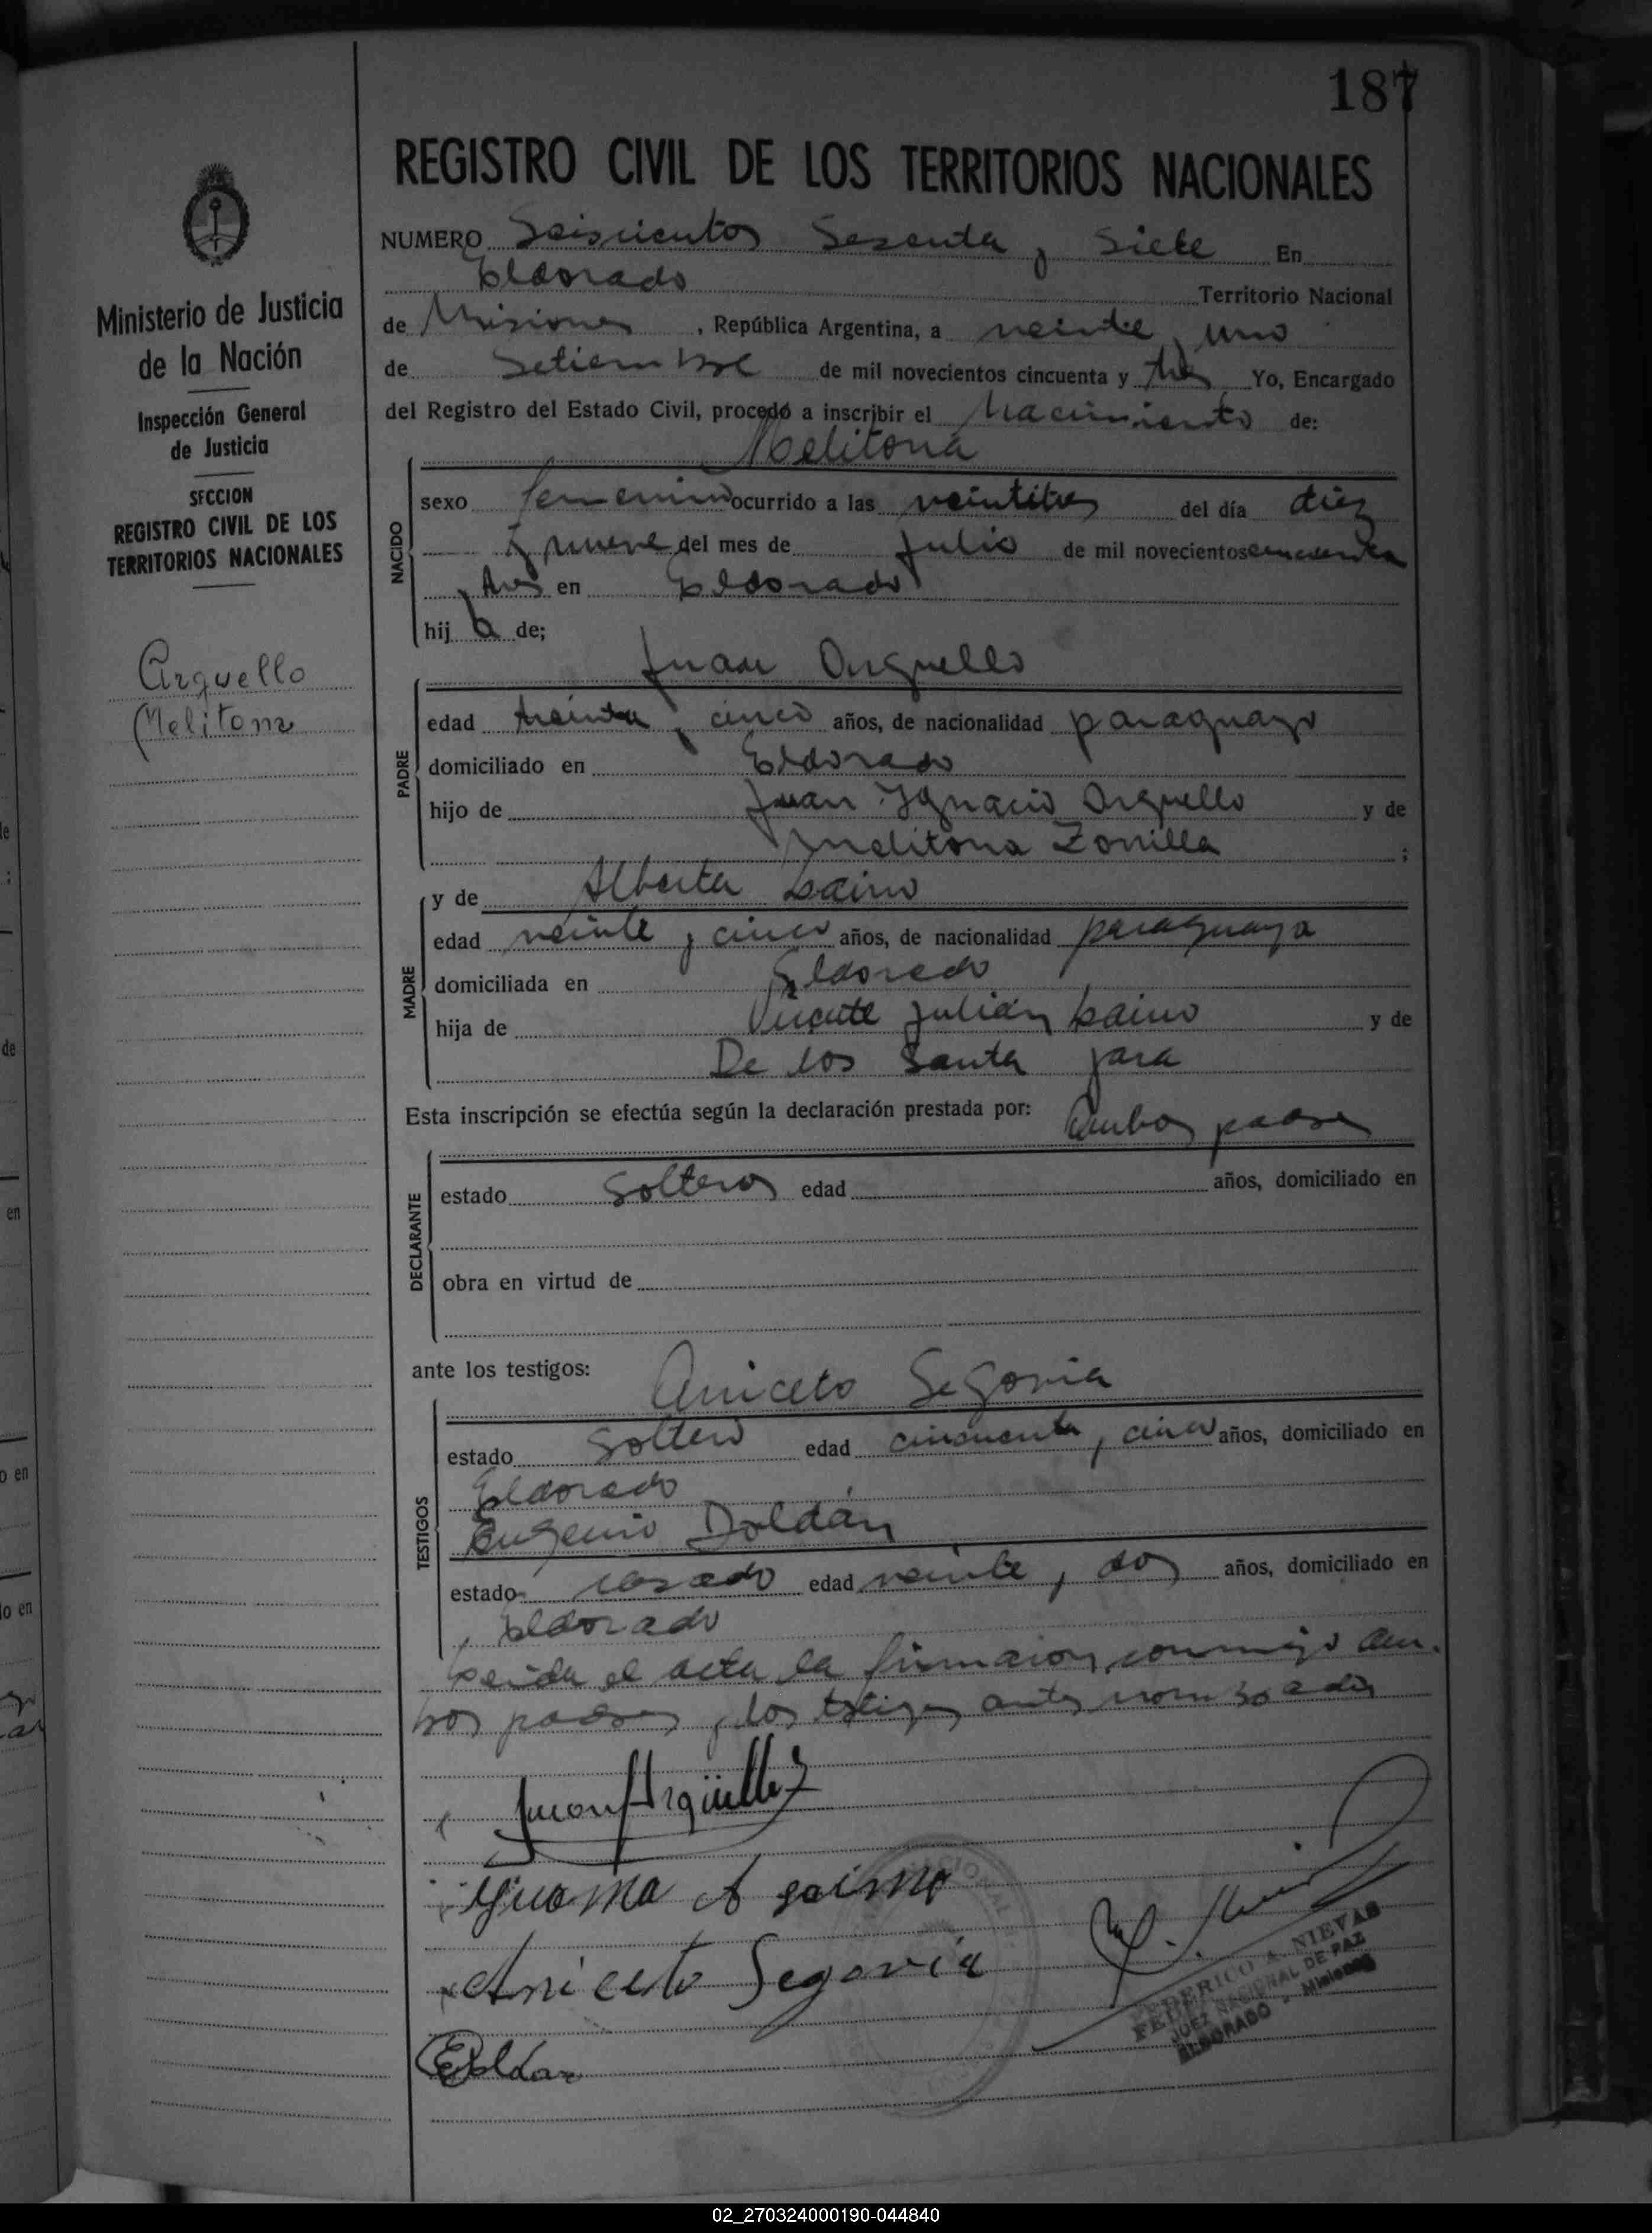 187
REGISTRO CIVIL DE LOS TERRITORIOS NACIONALES
NUMERO Seiscientos Sesenta y Siete En
Eldorado Territorio Nacional
de Misiones, República Argentina, a veinte y uno
de Setiembre de mil novecientos cincuenta y tres Yo, Encargado
del Registro del Estado Civil, procedo a inscribir el Nacimiento de:
Melitona
NACIDO
sexo femenino ocurrido a las veintitres del día diez
y nueve del mes de Julio de mil novecientos cincuenta
y tres en Eldorado
hij a de;
Juan Arguello
PADRE
edad treinta y cinco años, de nacionalidad paraguayo
domiciliado en Eldorado
hijo de Juan Ygnacio Arguello y de
Melitona Zorrilla ;
MADRE
y de Alberta Laino
edad veinte y cinco años, de nacionalidad paraguaya
domiciliada en Eldorado
hija de Vicente Julián Laino y de
De los Santa Jara
Esta inscripción se efectúa según la declaración prestada por: Ambos padres
DECLARANTE
estado Solteros edad años, domiciliado en
obra en virtud de
ante los testigos: Aniceto Segovia
TESTIGOS
estado Soltero edad cincuenta y cinco años, domiciliado en
Eldorado
Eugenio Doldán
estado casado edad veinte y dos años, domiciliado en
Eldorado
Leida el acta la firmaron conmigo am-
bos padres y los testigos antes nombrados
Juan Argüello
Juana A Laino
Aniceto Segovia
EDoldan
FEDERICO A. NIEVAS
JUEZ NACIONAL DE PAZ
ELDORADO - Misiones
Ministerio de Justicia
de la Nación
Inspección General
de Justicia
SECCION
REGISTRO CIVIL DE LOS
TERRITORIOS NACIONALES
Arguello
Melitona
02_270324000190-044840